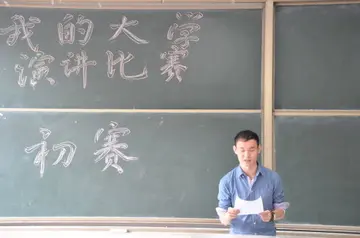 我的大学
演讲比赛
初赛